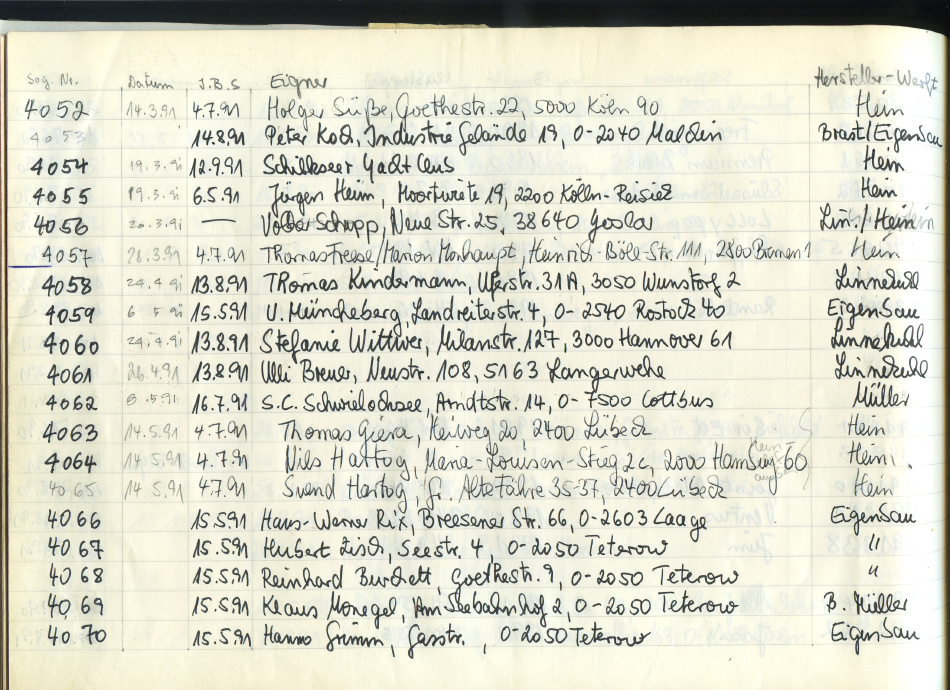 Seg. Nr. Datum J.B.S Eigner Hersteller-Werft
4052 14.3.91 4.7.91 Holger Süße, Goethestr. 22, 5000 Köln 90 Hein
4053 14.8.91 Peter Koch, Industrie Gelände 19, 0-2040 Malchin Brast/Eigenbau
4054 19.3.91 12.9.91 Schilkseer Yachtclub Hein
4055 19.3.91 6.5.91 Jürgen Hein, Moortwiete 19, 2200 Kölln-Reisiek Hein
4056 20.3.91 — Volker Schupp, Neue Str. 25, 38640 Goslar Lin./Hein
4057 28.3.91 4.7.91 Thomas Freese/Marion Monhaupt, Heinrich-Böll-Str. 111, 2800 Bremen 1 Hein
4058 24.4.91 13.8.91 Thomas Kindermann, Uferstr. 31A, 3050 Wunstorf 2 Linnekuhl
4059 6.5.91 15.5.91 U. Müncheberg, Landreiterstr. 4, 0-2540 Rostock 40 Eigenbau
4060 24.4.91 13.8.91 Stefanie Wittwer, Milanstr. 127, 3000 Hannover 61 Linnekuhl
4061 26.4.91 13.8.91 Ulli Breuer, Neustr. 108, 5163 Langerwehe Linnekuhl
4062 8.5.91 16.7.91 S.C. Schwielochsee, Arndtstr. 14, 0-7500 Cottbus Müller
4063 14.5.91 4.7.91 Thomas Giera, Heiweg 20, 2400 Lübeck Hein
4064 14.5.91 4.7.91 Nils Hartog, Maria-Louisen-Stieg 2c, 2000 Hamburg 60 Hein
4065 14.5.91 4.7.91 Svend Hartog, Gr. Alte Fähre 35-37, 2400 Lübeck Hein
4066 15.5.91 Hans-Werner Rix, Breesener Str. 66, 0-2603 Laage Eigenbau
4067 15.5.91 Hubert Zisch, Seestr. 4, 0-2050 Teterow "
4068 15.5.91 Reinhard Burchett, Goethestr. 9, 0-2050 Teterow "
4069 15.5.91 Klaus Monegel, Am Seebahnhof 2, 0-2050 Teterow B. Müller
4070 15.5.91 Hanno Grimm, Garstr., 0-2050 Teterow Eigenbau